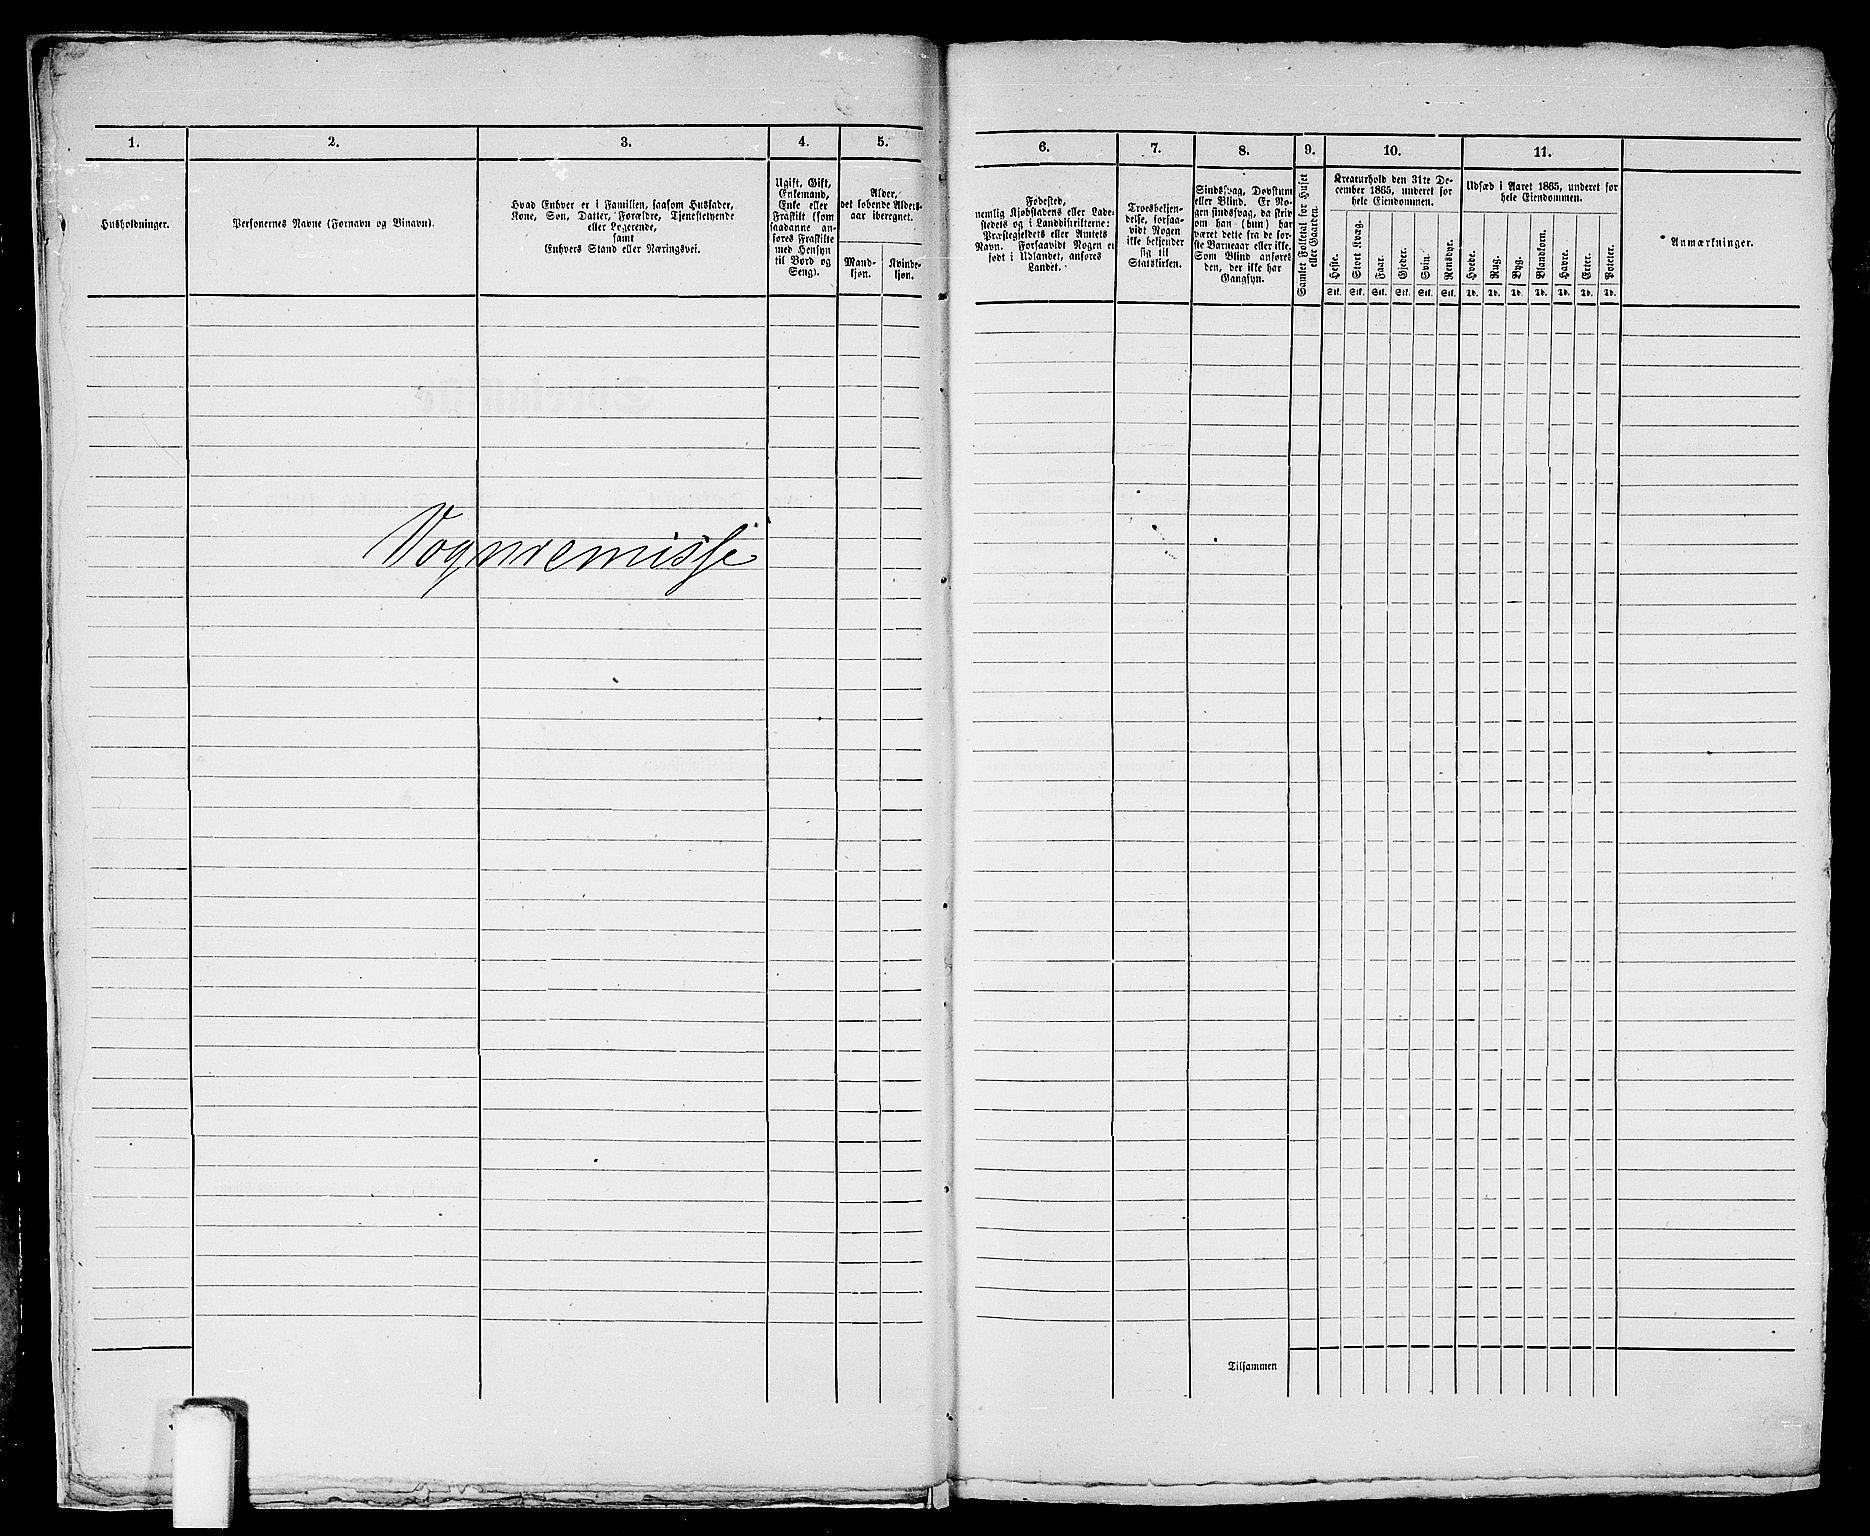 1.
Husholdninger.
2.
Personernes Navne (Fornavn og Binavn).
3.
Hvad Enhver er i Familien, saasom Husfader,
Kone, Søn, Datter, Forældre, Tjenestetyende
eller Logerende,
samt
Enhvers Stand eller Næringsvei.
4.
Ugift, Gift,
Enkemand,
Enke eller
Fraskilt (som
saadanne an-
føres Fraskilte
med Hensyn
til Bord og
Seng).
5.
Alder,
det løbende Alders-
aar iberegnet.
Mand-
kjøn.
Kvinde-
kjøn.
Vognremisse
6.
Fødested,
nemlig Kjøbstadens eller Lade-
stedets og i Landdistrikterne:
Præstegjeldets eller Amtets
Navn. Forsaavidt Nogen er
født i Udlandet, anføres
Landet.
7.
Troesbekjen-
delse, forsaa-
vidt Nogen
ikke bekjender
sig til
Statskirken.
8.
Sindssvag, Døvstum
eller Blind. Er No-
gen sindssvag, da skriv
om han (hun) har
været dette fra de før-
ste Barneaar eller ikke.
Som Blind anføres
den, der ikke har
Gangsyn.
9.
Gamlet Folketal for Huset
eller Gaarden.
10.
Kreaturhold den 31te De-
cember 1865, underet for
hele Eiendommen.
Heste.
Stort Kvæg.
Faar.
Gjeder.
Svin.
Rensdyr.
Stk. Stk. Stk. Stk. Stk. Stk.
11.
Udsæd i Aaret 1865, underet for
hele Eiendommen.
Hvede.
Rug.
Byg.
Blandkorn.
Havre.
Erter.
Poteter.
Td. Td. Td. Td. Td. Td. Td.
Anmærkninger.
Tilsammen